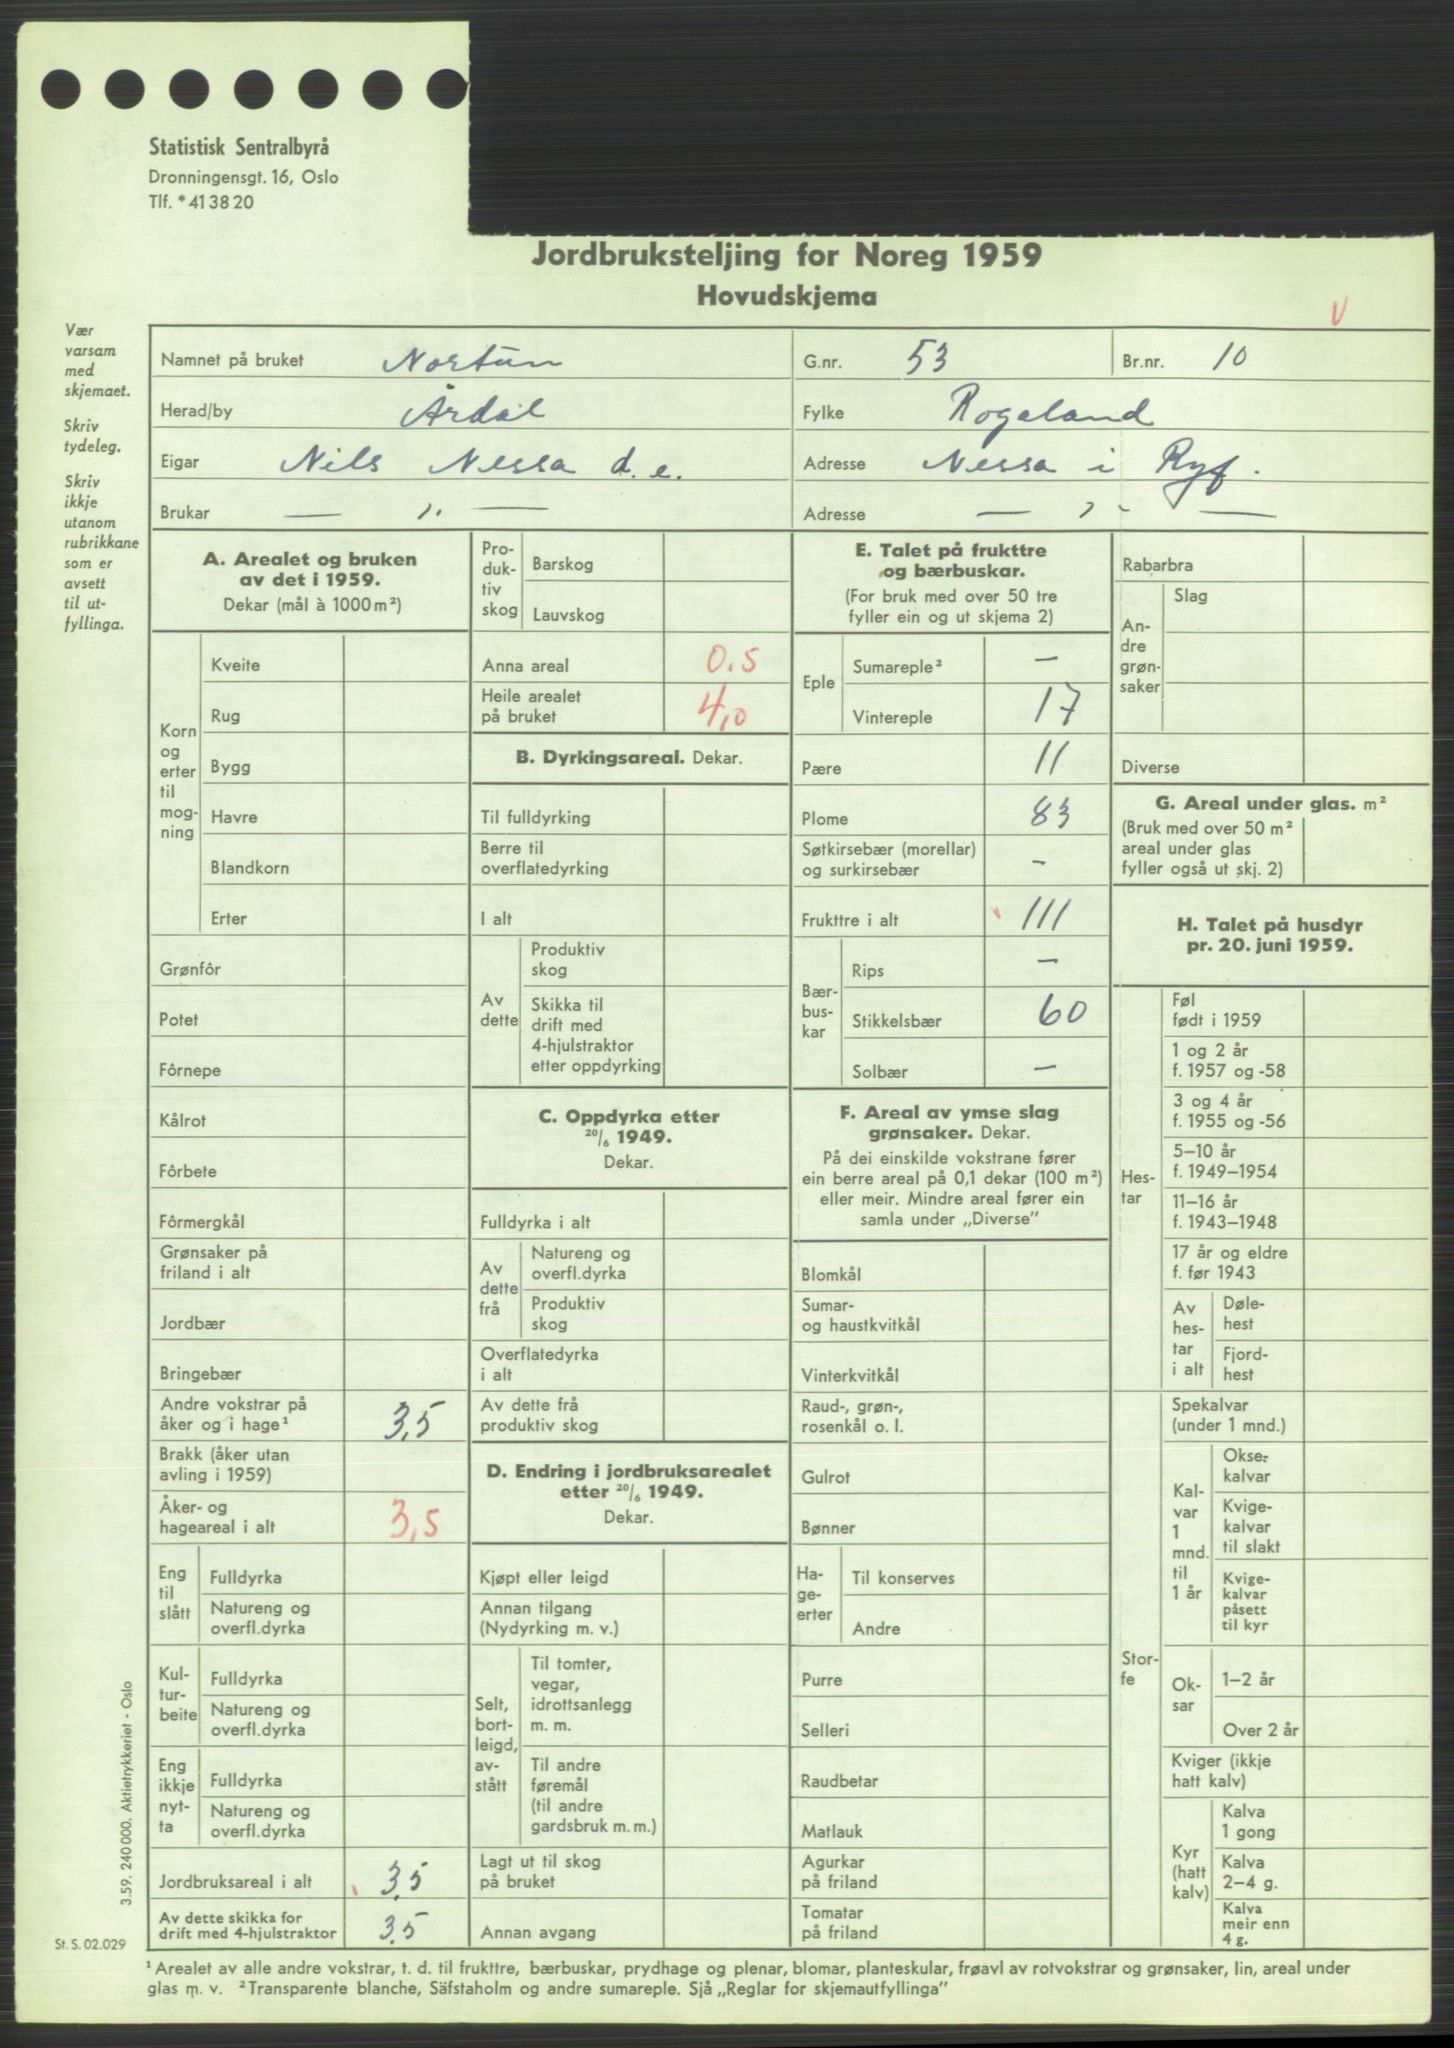 Statistisk Sentralbyrå
Dronningensgt. 16, Oslo
Tlf. * 41 38 20
Jordbruksteljing for Noreg 1959
Hovudskjema
V
Vær
varsam
med
skjemaet.
Skriv
tydeleg.
Skriv
ikkje
utanom
rubrikkane
som er
avsett
til ut-
fyllinga.
Namnet på bruket Nortun G.nr. 53 Br.nr. 10
Herad/by Årdal Fylke Rogaland
Eigar Nils Nessa d.e. Adresse Nessa i Ryf.
Brukar — ,, — Adresse — ,, —
A. Arealet og bruken
av det i 1959.
Dekar (mål à 1000 m²)
Korn
og
erter
til
mog-
ning
Kveite
Rug
Bygg
Havre
Blandkorn
Erter
Grønfôr
Potet
Fôrnepe
Kålrot
Fôrbete
Fôrmergkål
Grønsaker på
friland i alt
Jordbær
Bringebær
Andre vokstrar på
åker og i hage¹ 3,5
Brakk (åker utan
avling i 1959)
Åker- og
hageareal i alt 3,5
Eng
til
slått
Fulldyrka
Natureng og
overfl.dyrka
Kul-
tur-
beite
Fulldyrka
Natureng og
overfl.dyrka
Eng
ikkje
nyt-
ta
Fulldyrka
Natureng og
overfl.dyrka
Jordbruksareal i alt 3,5
Av dette skikka for
drift med 4-hjulstraktor 3,5
Pro-
duk-
tiv
skog
Barskog
Lauvskog
Anna areal 0.5
Heile arealet
på bruket 4,0
B. Dyrkingsareal. Dekar.
Til fulldyrking
Berre til
overflatedyrking
I alt
Av
dette
Produktiv
skog
Skikka til
drift med
4-hjulstraktor
etter oppdyrking
C. Oppdyrka etter
20/6 1949.
Dekar.
Fulldyrka i alt
Av
dette
frå
Natureng og
overfl.dyrka
Produktiv
skog
Overflatedyrka
i alt
Av dette frå
produktiv skog
D. Endring i jordbruksarealet
etter 20/6 1949.
Dekar.
Kjøpt eller leigd
Annan tilgang
(Nydyrking m. v.)
Selt,
bort-
leigd,
av-
stått
Til tomter,
vegar,
idrottsanlegg
m. m.
Til andre
føremål
(til andre
gardsbruk m. m.)
Lagt ut til skog
på bruket
Annan avgang
E. Talet på frukttre
og bærbuskar.
(For bruk med over 50 tre
fyller ein og ut skjema 2)
Eple
Sumareple² —
Vintereple 17
Pære 11
Plome 83
Søtkirsebær (morellar)
og surkirsebær —
Frukttre i alt 111
Bær-
bus-
kar
Rips —
Stikkelsbær 60
Solbær —
F. Areal av ymse slag
grønsaker. Dekar.
På dei einskilde vokstrane fører
ein berre areal på 0,1 dekar (100 m²)
eller meir. Mindre areal fører ein
samla under „Diverse”
Blomkål
Sumar-
og haustkvitkål
Vinterkvitkål
Raud-, grøn-,
rosenkål o. l.
Gulrot
Bønner
Ha-
ge-
erter
Til konserves
Andre
Purre
Selleri
Raudbetar
Matlauk
Agurkar
på friland
Tomatar
på friland
Rabarbra
An-
dre
grøn-
saker
Slag
Diverse
G. Areal under glas. m²
(Bruk med over 50 m²
areal under glas
fyller også ut skj. 2)
H. Talet på husdyr
pr. 20. juni 1959.
Hes-
tar
Føl
født i 1959
1 og 2 år
f. 1957 og -58
3 og 4 år
f. 1955 og -56
5–10 år
f. 1949–1954
11–16 år
f. 1943–1948
17 år og eldre
f. før 1943
Av
hes-
tar
i alt
Døle-
hest
Fjord-
hest
Stor-
fe
Spekalvar
(under 1 mnd.)
Kal-
var
1
mnd.
til
1 år
Okse-
kalvar
Kvige-
kalvar
til slakt
Kvige-
kalvar
påsett
til kyr
Ok-
sar
1–2 år
Over 2 år
Kviger (ikkje
hatt kalv)
Kyr
(hatt
kalv)
Kalva
1 gong
Kalva
2–4 g.
Kalva
meir enn
4 g.
3.59. 240 000. Aktietrykkeriet - Oslo
St. S. 02.029
¹ Arealet av alle andre vokstrar, t. d. til frukttre, bærbuskar, prydhage og plenar, blomar, planteskular, frøavl av rotvokstrar og grønsaker, lin, areal under
glas m. v. ² Transparente blanche, Säfstaholm og andre sumareple. Sjå „Reglar for skjemautfyllinga”